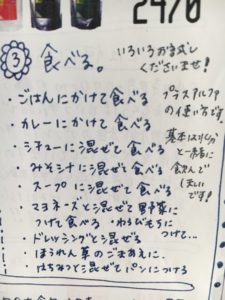 2470
③ 食べる。
いろいろお試し
くださいませ!
・ごはんにかけて食べる
・カレーにかけて食べる
・シチューに混ぜて食べる
・みそシナに混ぜて食べる
・スープに混ぜて食べる
・マヨネーズと混ぜて野菜に
つけて食べる ・わらびもちに
つけて…
・ドレッシングと混ぜる
・ほうれん草のごまあえに。
・はちみつと混ぜてパンにつける
プラスアルファ
の使い方です。
基本は
と一緒に
飲んで
ほしい
です!